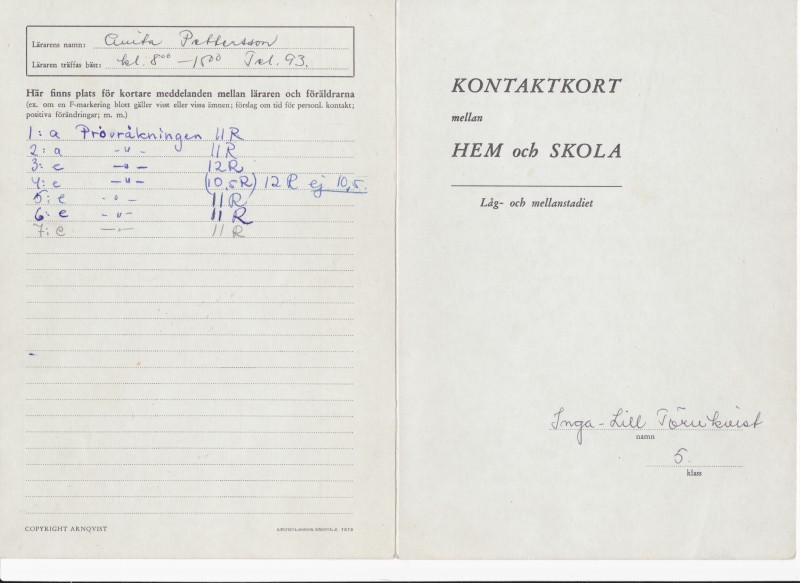 Lärarens namn: Anita Pettersson
Läraren träffas bäst: kl. 8⁰⁰ – 15⁰⁰ Tel. 93.
Här finns plats för kortare meddelanden mellan läraren och föräldrarna
(ex. om en F-markering blott gäller visst eller vissa ämnen; förslag om tid för personl. kontakt;
positiva förändringar; m. m.)
1: a Provräkningen 11 R
2: a -"- 11 R
3: e -"- 12 R
4: e -"- (10,5 R) 12 R ej 10,5.
5: e -"- 11 R
6: e -"- 11 R
7: e -"- 11 R
COPYRIGHT ARNQVIST
KONTAKTKORT
mellan
HEM och SKOLA
Låg- och mellanstadiet
Inga-Lill Törnkvist
namn
5.
klass